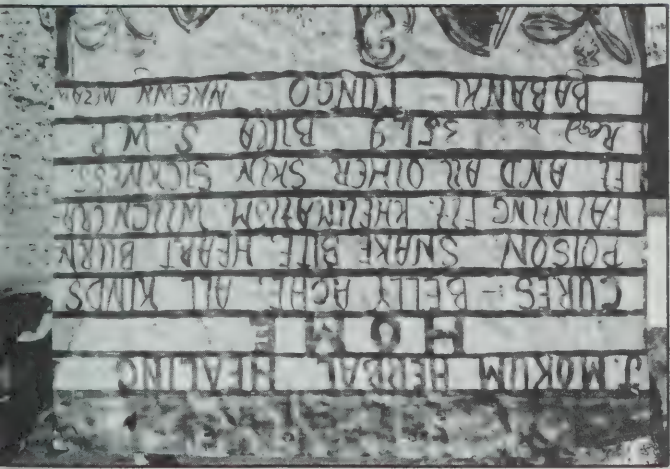 J. MOKUM HERBAL HEALING
HOME
CURES - BELLY ACHE, ALL KINDS
POISON SNAKE BITE, HEART BURN
FAINTING FIT. RHEUMATISM WITCH CRA
FT AND ALL OTHER SKIN SICKNESS
Regd no 3549 BUEA S.W.P
BABANKI TUNGO NKEWN MEZAM